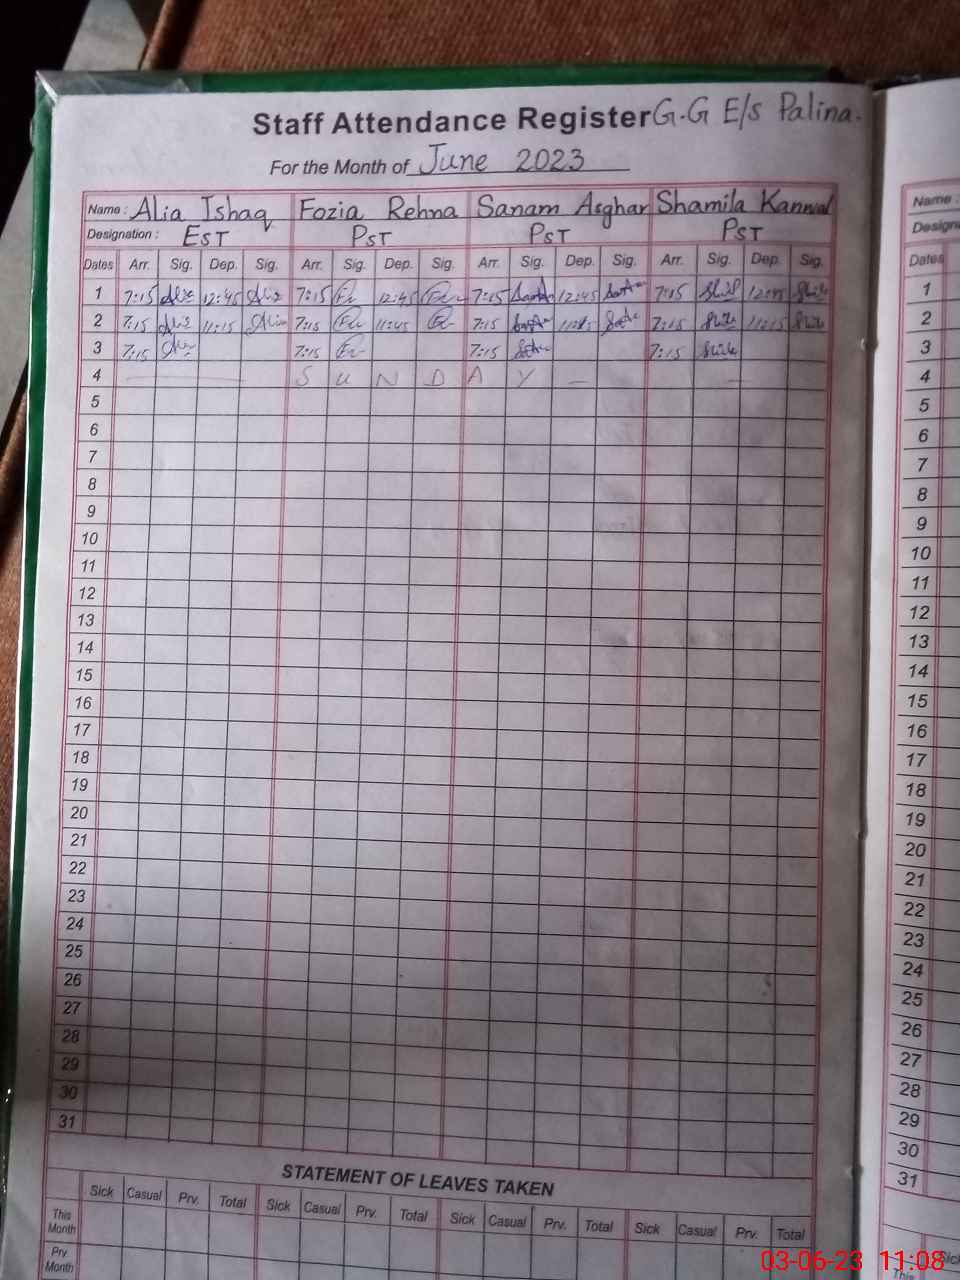 Staff Attendance Register G.G E/S Palina.
For the Month of June 2023
Name : Alia Ishaq Fozia Rehna Sanam Asghar Shamila Kanwal
Designation : EST PST PST PST
Dates Arr. Sig. Dep. Sig. Arr. Sig. Dep. Sig. Arr. Sig. Dep. Sig. Arr. Sig. Dep. Sig.
1 7:15 12:45 7:15 12:45 7:15 12:45 7:15 12:45
2 7:15 11:15 7:15 11:45 7:15 7:15 11:15
3 7:15 7:15 7:15 7:15
4 SUNDAY
5
6
7
8
9
10
11
12
13
14
15
16
17
18
19
20
21
22
23
24
25
26
27
28
29
30
31
STATEMENT OF LEAVES TAKEN
Sick Casual Prv. Total Sick Casual Prv. Total Sick Casual Prv. Total Sick Casual Prv. Total
This Month
Prv. Month
Name :
Dates
1
2
3
4
5
6
7
8
9
10
11
12
13
14
15
16
17
18
19
20
21
22
23
24
25
26
27
28
29
30
31
This
03-06-23 11:08